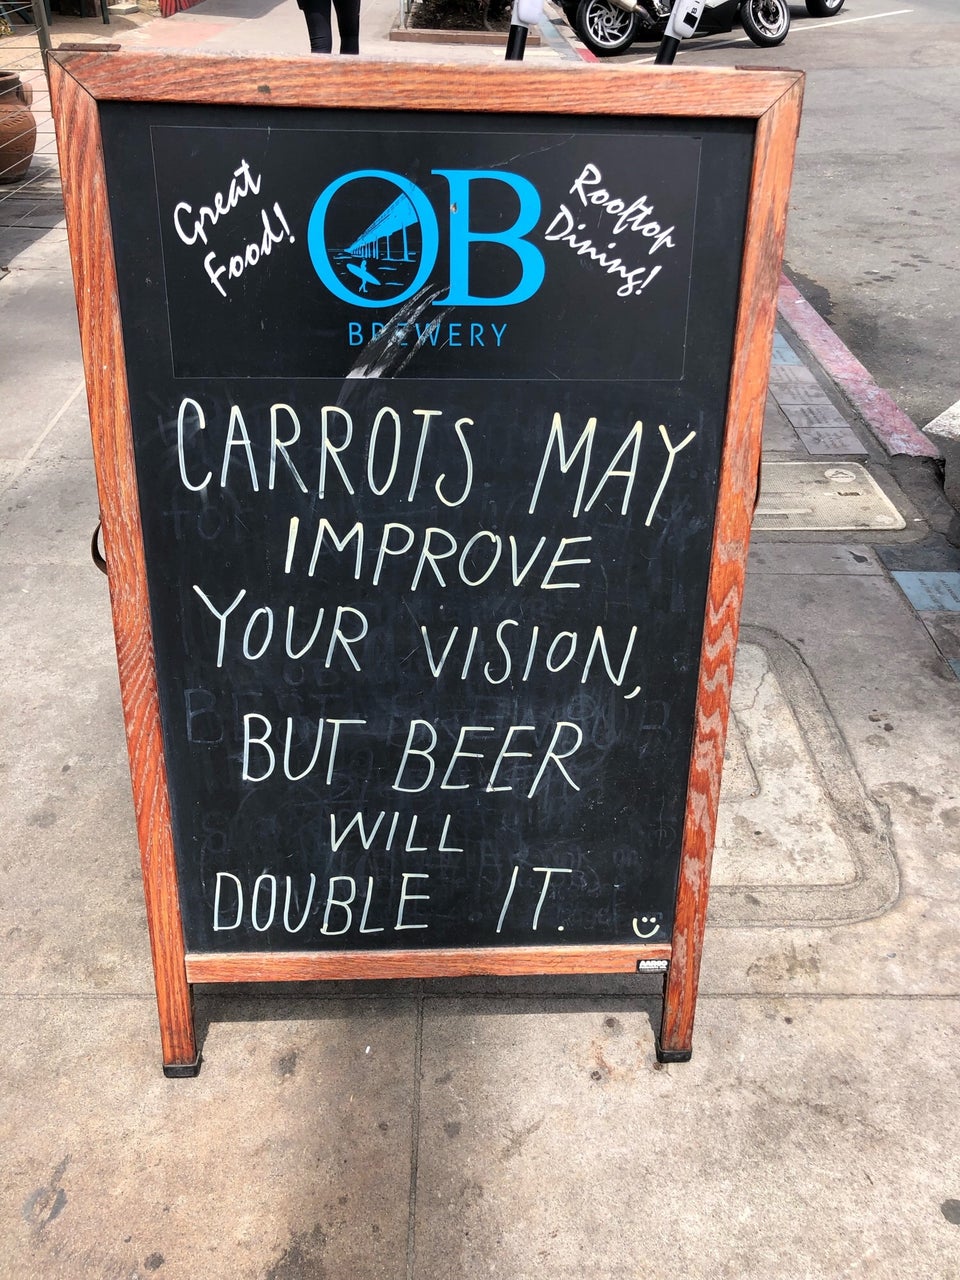 Great
Food!
OB
BREWERY
Rooftop
Dining!
CARROTS MAY
IMPROVE
YOUR VISION,
BUT BEER
WILL
DOUBLE IT.